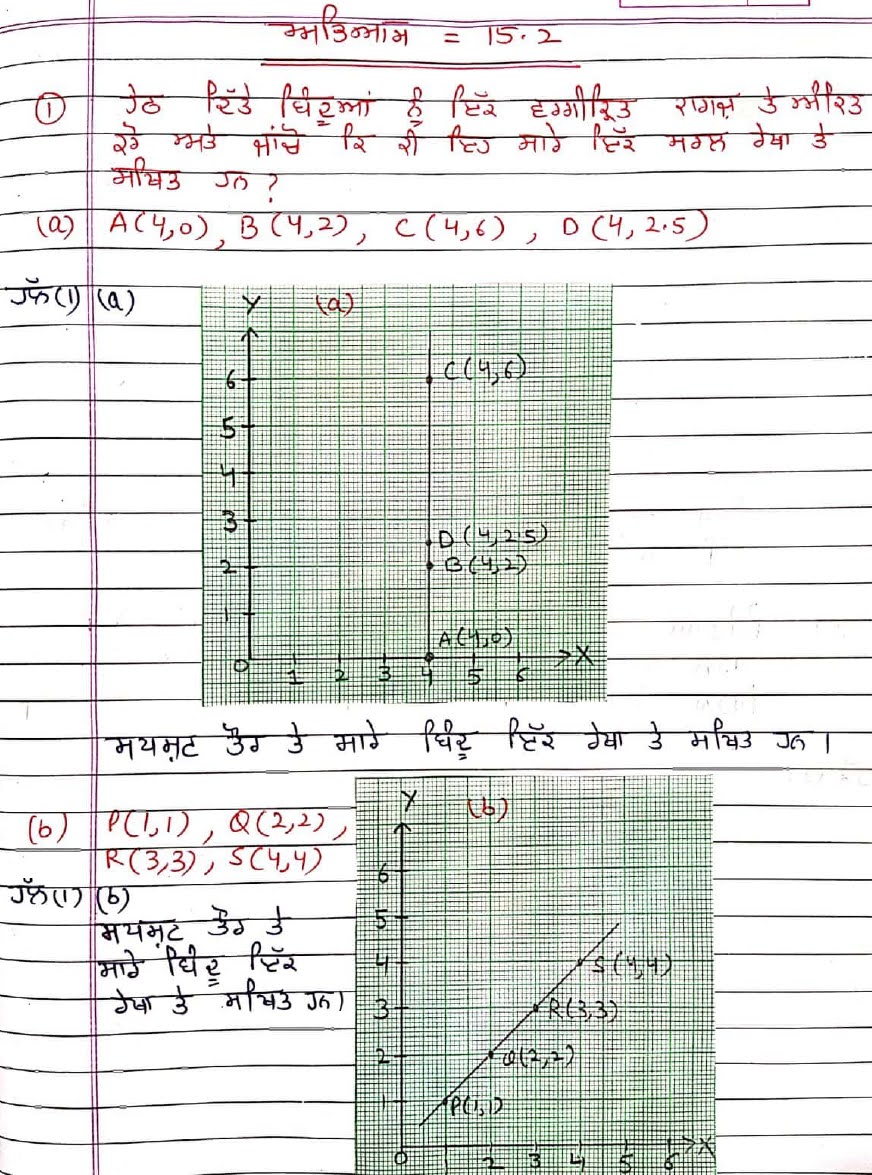 ਅਭਿਆਸ = 15.2
① ਹੇਠ ਦਿੱਤੇ ਬਿੰਦੂਆਂ ਨੂੰ ਇੱਕ ਵਰਗੀਕ੍ਰਿਤ ਕਾਗਜ਼ ਤੇ ਅੰਕਿਤ
ਕਰੋ ਅਤੇ ਜਾਂਚੋ ਕਿ ਕੀ ਇਹ ਸਾਰੇ ਇੱਕ ਸਰਲ ਰੇਖਾ ਤੇ
ਸਥਿਤ ਹਨ ?
(a) A(4,0), B(4,2), C(4,6), D(4,2.5)
ਹੱਲ(1) (a)
Y (a)
C(4,6)
6
5
4
3
D(4,2.5)
B(4,2)
2
1
A(4,0)
X
0 1 2 3 4 5 6
ਸਪਸ਼ਟ ਤੌਰ ਤੇ ਸਾਰੇ ਬਿੰਦੂ ਇੱਕ ਰੇਖਾ ਤੇ ਸਥਿਤ ਹਨ।
(b) P(1,1), Q(2,2),
R(3,3), S(4,4)
ਹੱਲ(1) (b)
ਸਪਸ਼ਟ ਤੌਰ ਤੇ
ਸਾਰੇ ਬਿੰਦੂ ਇੱਕ
ਰੇਖਾ ਤੇ ਸਥਿਤ ਹਨ।
Y (b)
6
5
4
S(4,4)
3
R(3,3)
2
Q(2,2)
1
P(1,1)
X
0 2 3 4 5 6